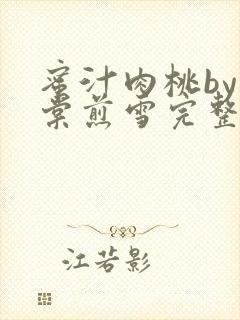 蜜汁肉桃by
棠煎雪完整
江若影